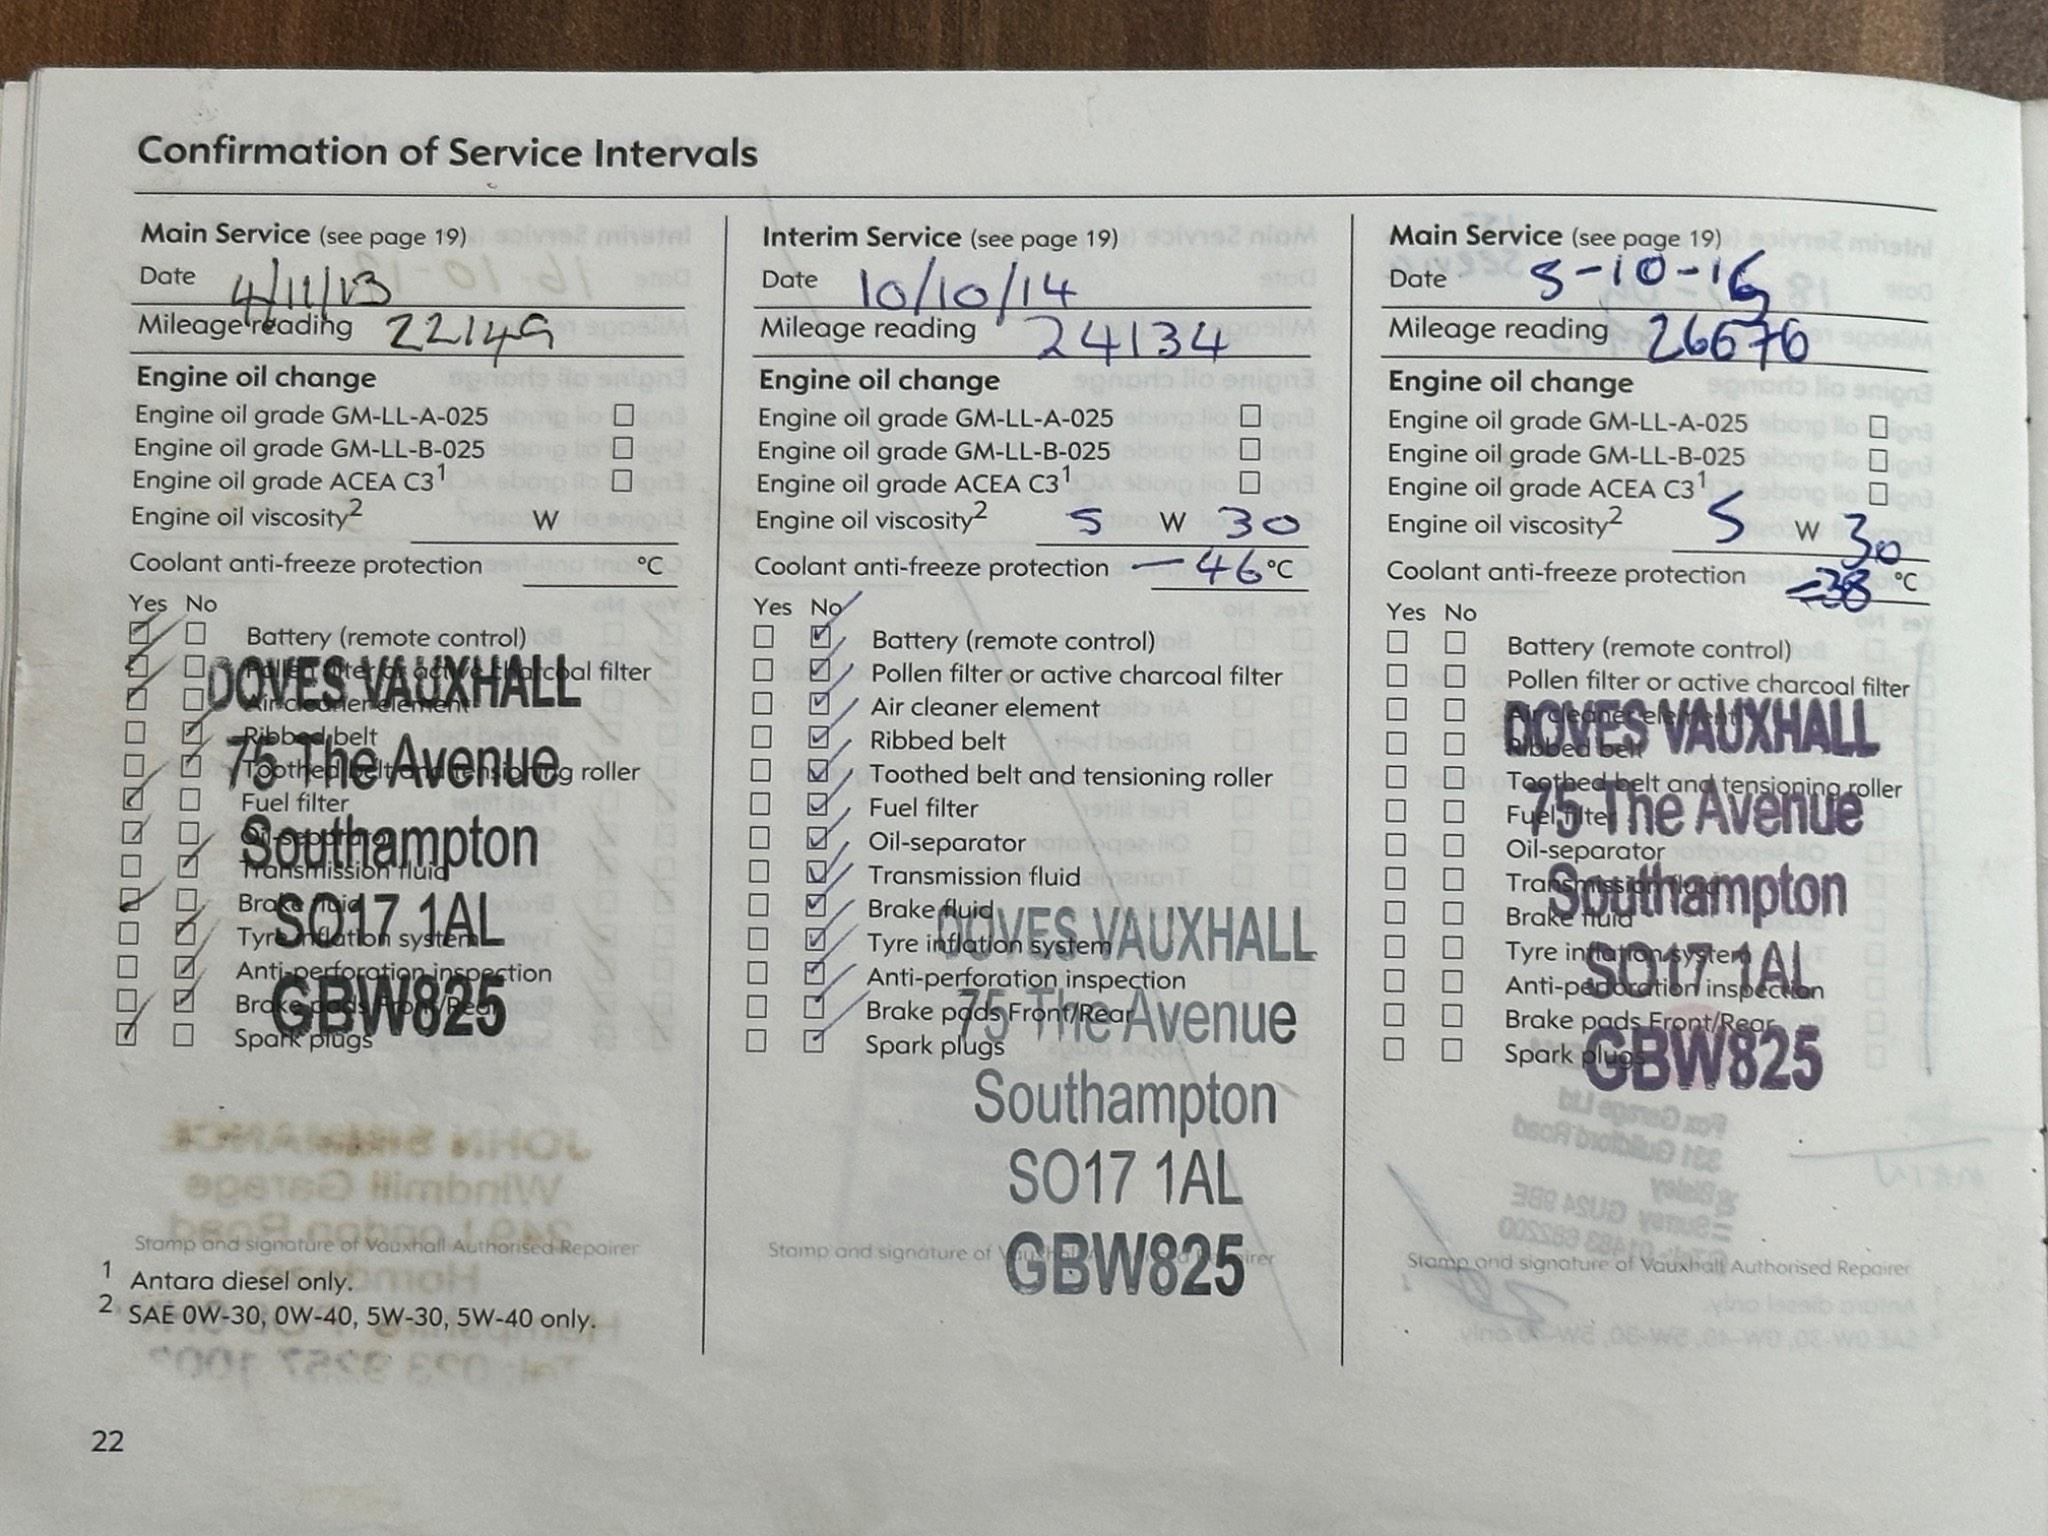 Confirmation of Service Intervals
Main Service (see page 19)
Date 4/11/13
Mileage reading 22149
Engine oil change
Engine oil grade GM-LL-A-025
Engine oil grade GM-LL-B-025
Engine oil grade ACEA C3¹
Engine oil viscosity² W
Coolant anti-freeze protection °C
Yes No
Battery (remote control)
Pollen filter or active charcoal filter
Air cleaner element
Ribbed belt
Toothed belt and tensioning roller
Fuel filter
Oil-separator
Transmission fluid
Brake fluid
Tyre inflation system
Anti-perforation inspection
Brake pads Front/Rear
Spark plugs
DOVES VAUXHALL
75 The Avenue
Southampton
SO17 1AL
GBW825
Stamp and signature of Vauxhall Authorised Repairer
1 Antara diesel only.
2 SAE 0W-30, 0W-40, 5W-30, 5W-40 only.
Interim Service (see page 19)
Date 10/10/14
Mileage reading 24134
Engine oil change
Engine oil grade GM-LL-A-025
Engine oil grade GM-LL-B-025
Engine oil grade ACEA C3¹
Engine oil viscosity² 5 W 30
Coolant anti-freeze protection -46 °C
Yes No
Battery (remote control)
Pollen filter or active charcoal filter
Air cleaner element
Ribbed belt
Toothed belt and tensioning roller
Fuel filter
Oil-separator
Transmission fluid
Brake fluid
Tyre inflation system
Anti-perforation inspection
Brake pads Front/Rear
Spark plugs
DOVES VAUXHALL
75 The Avenue
Southampton
SO17 1AL
GBW825
Stamp and signature of Vauxhall Authorised Repairer
Main Service (see page 19)
Date 5-10-16
Mileage reading 26676
Engine oil change
Engine oil grade GM-LL-A-025
Engine oil grade GM-LL-B-025
Engine oil grade ACEA C3¹
Engine oil viscosity² 5 W 30
Coolant anti-freeze protection -38 °C
Yes No
Battery (remote control)
Pollen filter or active charcoal filter
Air cleaner element
Ribbed belt
Toothed belt and tensioning roller
Fuel filter
Oil-separator
Transmission fluid
Brake fluid
Tyre inflation system
Anti-perforation inspection
Brake pads Front/Rear
Spark plugs
DOVES VAUXHALL
75 The Avenue
Southampton
SO17 1AL
GBW825
Stamp and signature of Vauxhall Authorised Repairer
22